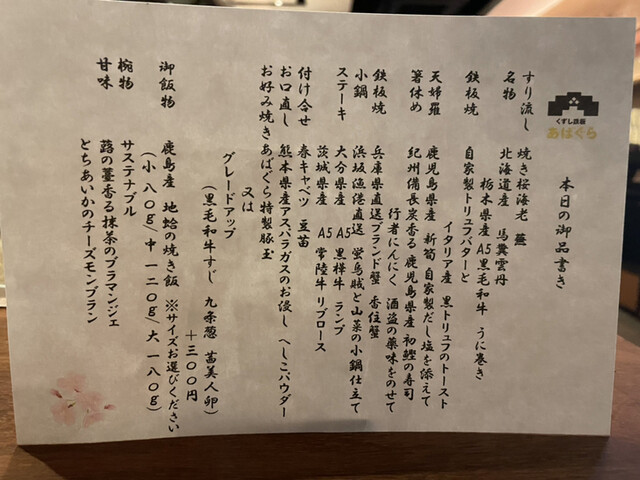 くずし鉄板
あばぐら
本日の御品書き
すり流し 焼き桜海老 蕪
名物 北海道産 馬糞雲丹
栃木県産 A5黒毛和牛 うに巻き
鉄板焼 自家製トリュフバターと
イタリア産 黒トリュフのトースト
天婦羅 鹿児島県産 新筍 自家製だし塩を添えて
箸休め 紀州備長炭香る 鹿児島県産 初鰹の寿司
行者にんにく 酒盗の薬味をのせて
鉄板焼 兵庫県直送ブランド蟹 香住蟹
小鍋 浜坂漁港直送 蛍烏賊と山菜の小鍋仕立て
ステーキ 大分県産 A5 黒樺牛 ランプ
茨城県産 A5 常陸牛 リブロース
付け合せ 春キャベツ 豆苗
お口直し 熊本県産アスパラガスのお浸し へしこパウダー
お好み焼き あばぐら特製豚玉
又は
グレードアップ
(黒毛和牛すじ 九条葱 茜美人卵)
+三〇〇円
御飯物 鹿島産 地蛤の焼き飯 ※サイズお選びください
(小 八〇g/中 一二〇g/大 一八〇g)
椀物 サステナブル
甘味 蕗の薹香る 抹茶のブラマンジェ
とちあいかのチーズモンブラン